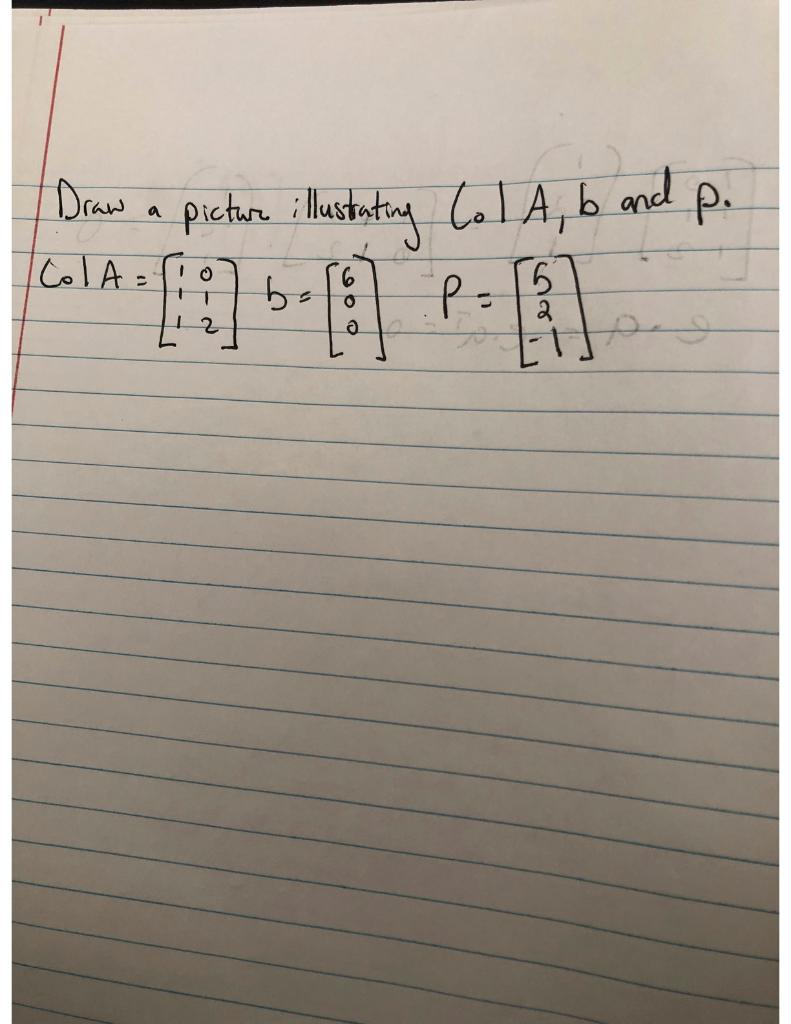 Draw a picture illustrating Col A, b and p.
Col A = [1 0 b = [6 P = [5
1 1 0 2
1 2] 0] -1]